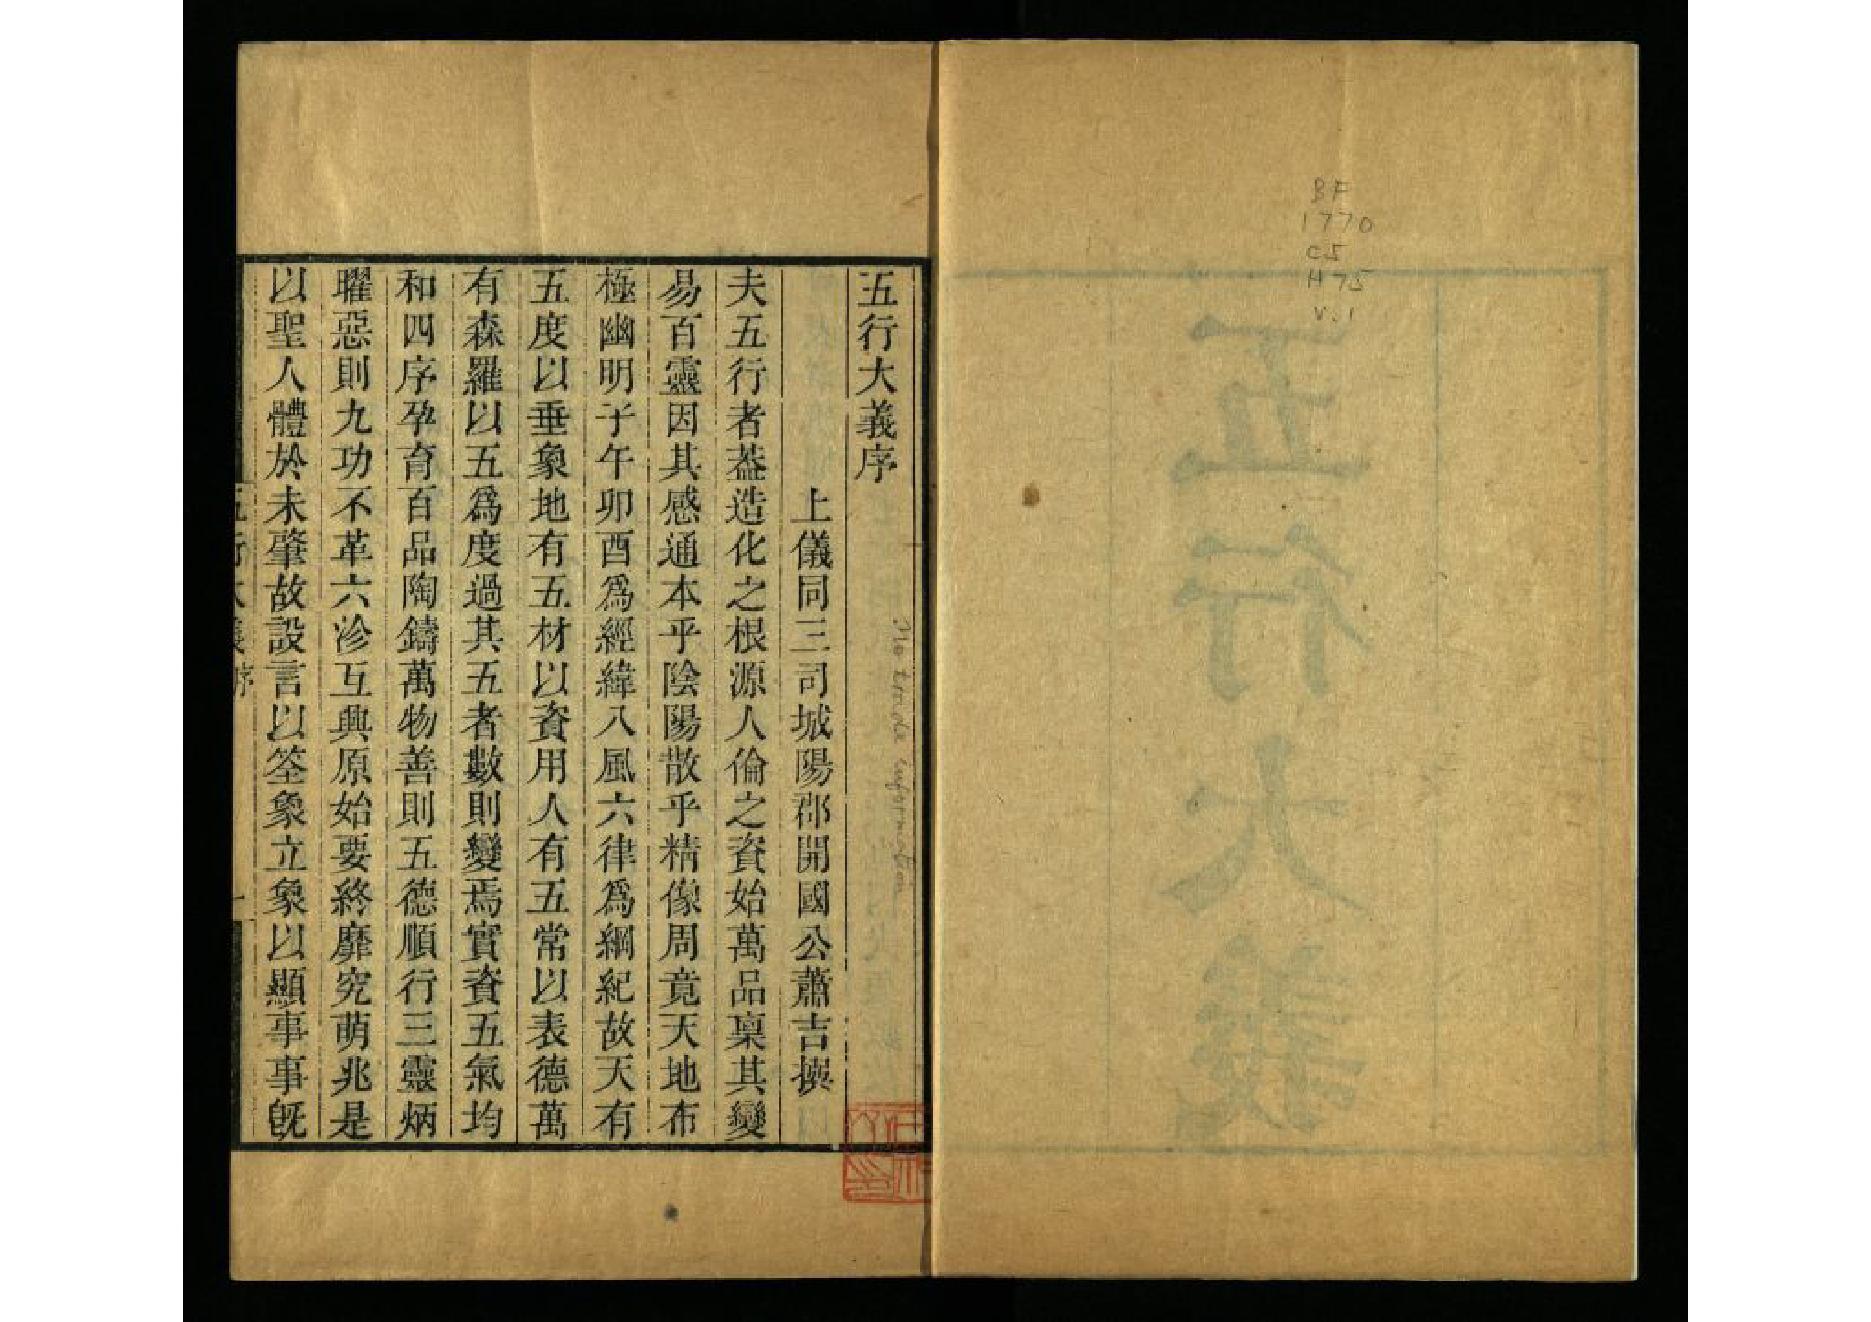 BF
1770
C5
H75
v.1
五行大義
五行大義序
上儀同三司城陽郡開國公蕭吉撰
夫五行者葢造化之根源人倫之資始萬品稟其變
易百靈因其感通本乎陰陽散乎精像周竟天地布
極幽明子午卯酉爲經緯八風六律爲綱紀故天有
五度以垂象地有五材以資用人有五常以表德萬
有森羅以五爲度過其五者數則變焉實資五氣均
和四序孕育百品陶鑄萬物善則五德順行三靈炳
曜惡則九功不革六沴互興原始要終靡究萌兆是
以聖人體於未肇故設言以筌象立象以顯事事旣
五行大義序
一